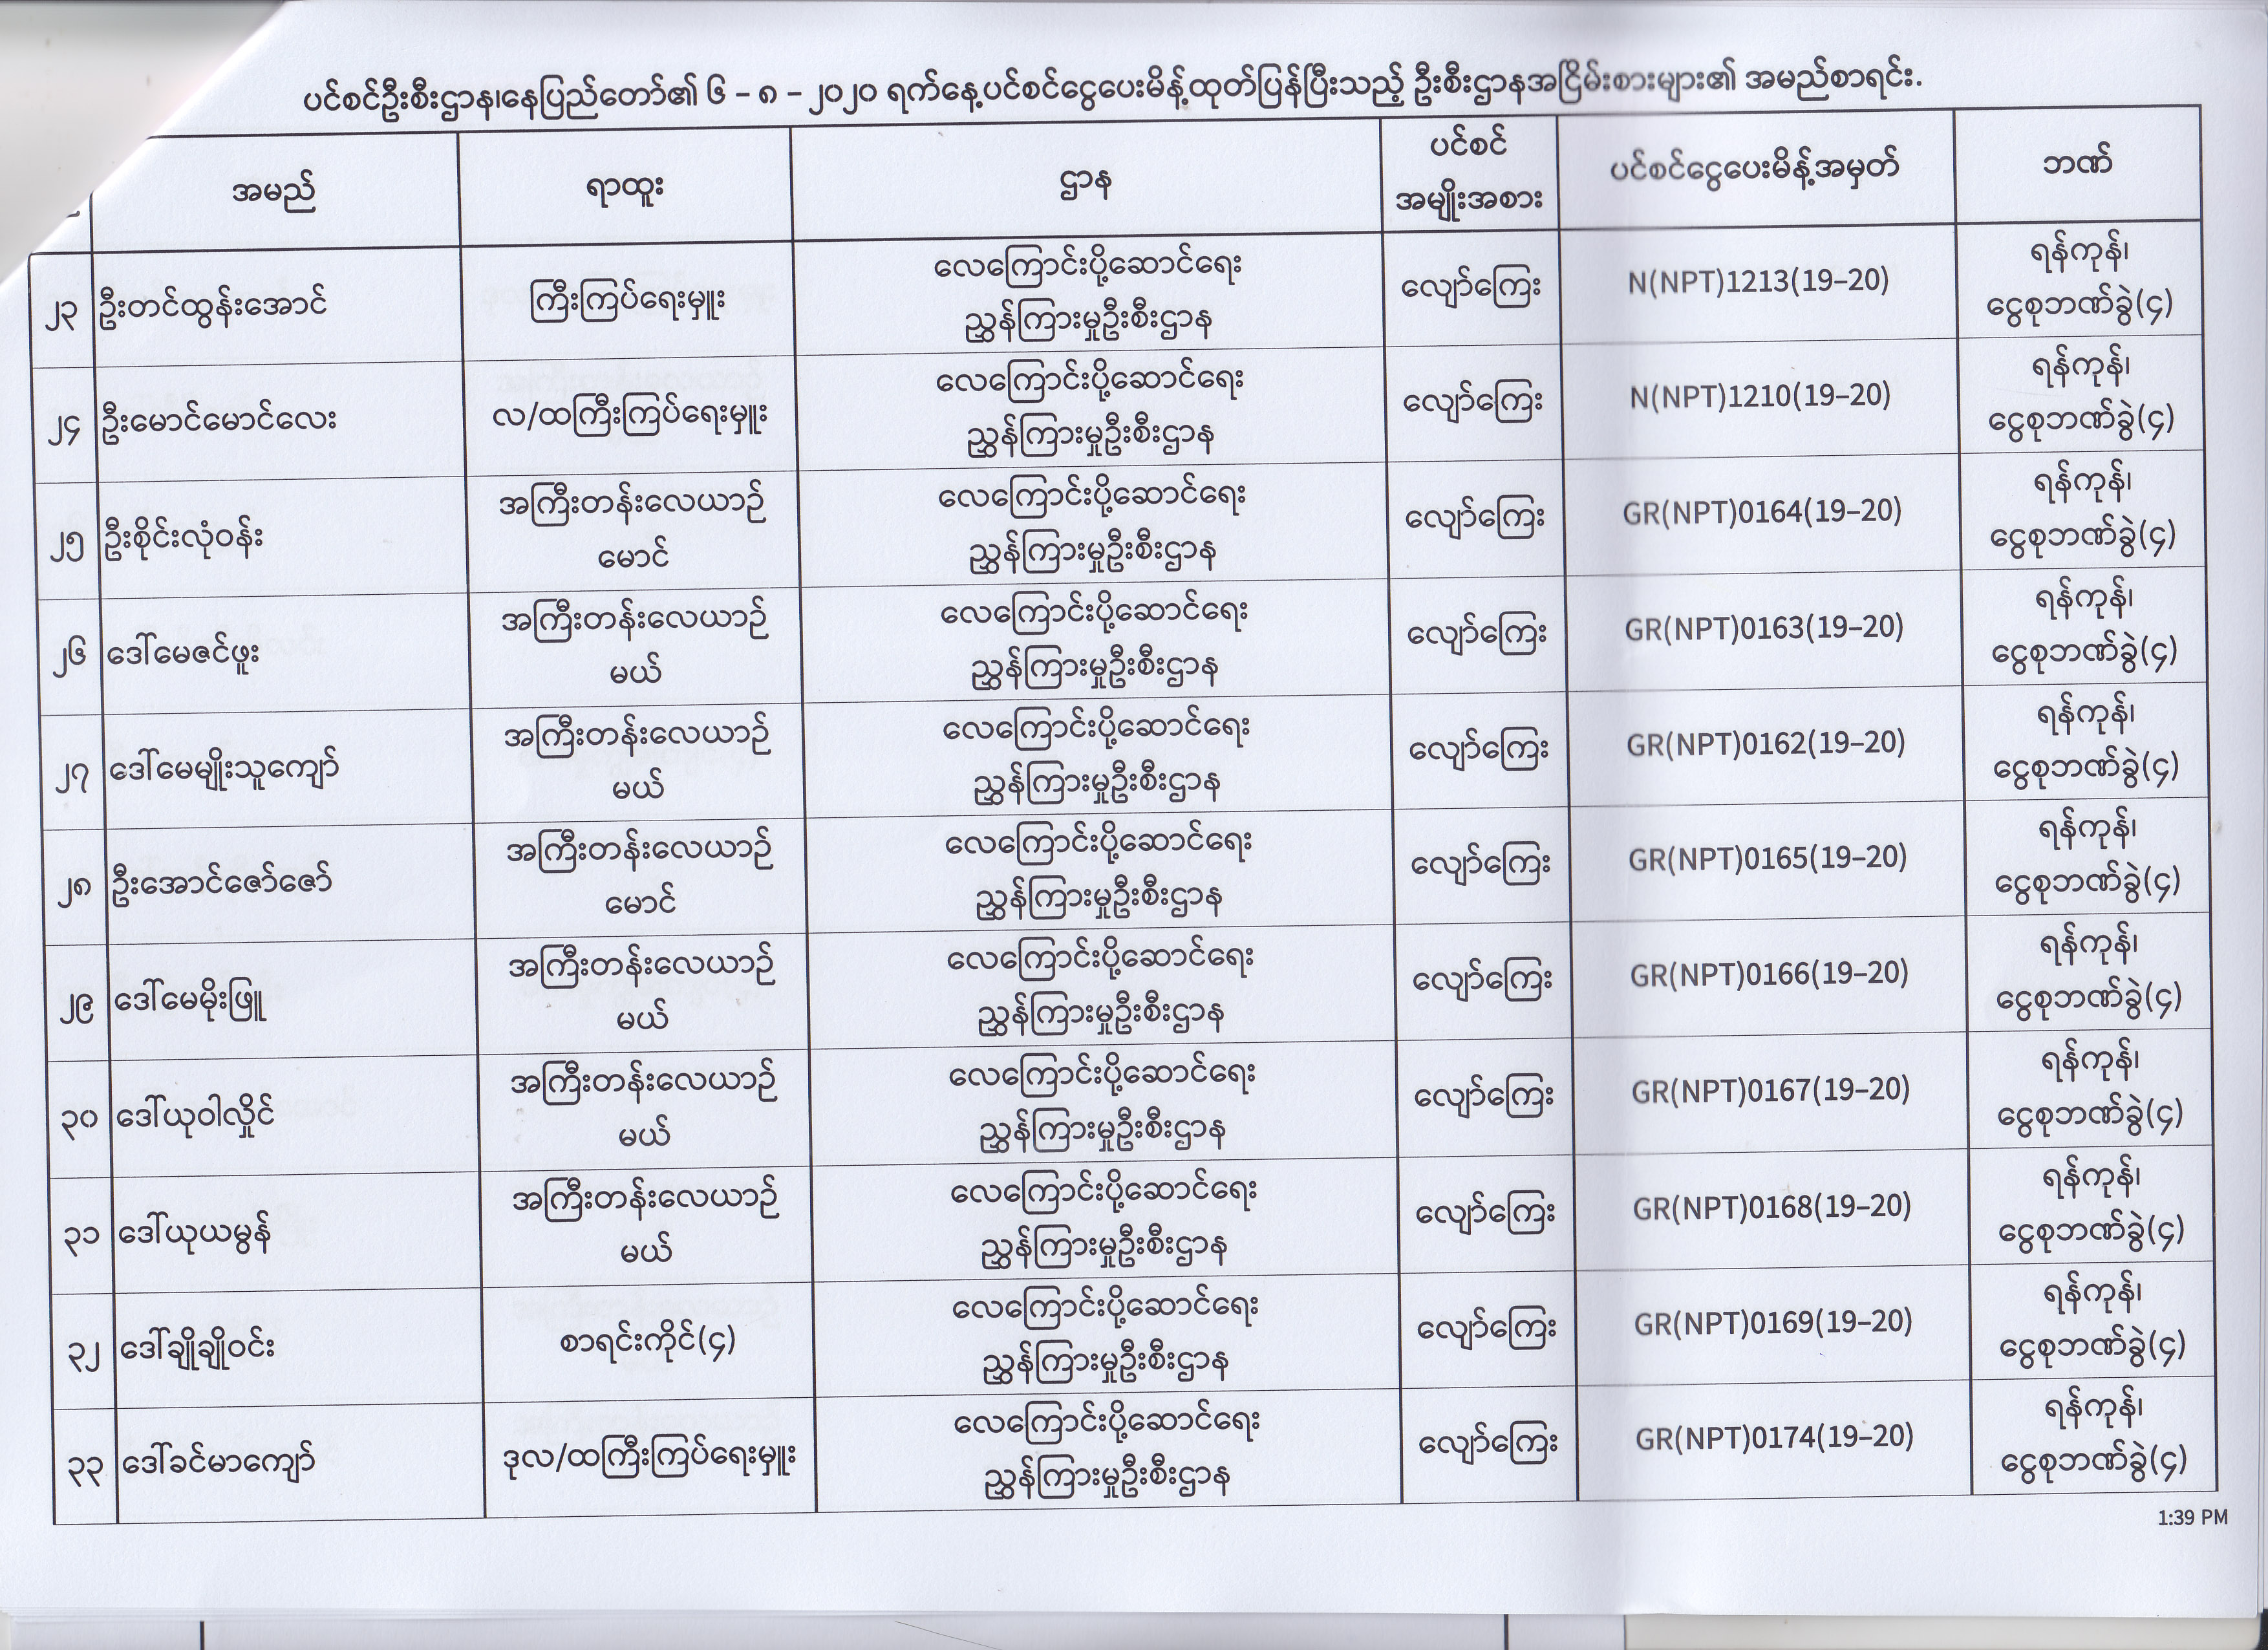 ပင်စင်ဦးစီးဌာန၊နေပြည်တော်၏ ၆ – ၈ – ၂၀၂၀ ရက်နေ့ပင်စင်ငွေပေးမိန့်ထုတ်ပြန်ပြီးသည့် ဦးစီးဌာနအငြိမ်းစားများ၏ အမည်စာရင်း.
အမည် ရာထူး ဌာန ပင်စင် အမျိုးအစား ပင်စင်ငွေပေးမိန့်အမှတ် ဘဏ်
၂၃ ဦးတင်ထွန်းအောင် ကြီးကြပ်ရေးမှူး လေကြောင်းပို့ဆောင်ရေး ညွှန်ကြားမှုဦးစီးဌာန လျော်ကြေး N(NPT)1213(19–20) ရန်ကုန်၊ ငွေစုဘဏ်ခွဲ(၄)
၂၄ ဦးမောင်မောင်လေး လ/ထကြီးကြပ်ရေးမှူး လေကြောင်းပို့ဆောင်ရေး ညွှန်ကြားမှုဦးစီးဌာန လျော်ကြေး N(NPT)1210(19–20) ရန်ကုန်၊ ငွေစုဘဏ်ခွဲ(၄)
၂၅ ဦးစိုင်းလုံဝန်း အကြီးတန်းလေယာဉ် မောင် လေကြောင်းပို့ဆောင်ရေး ညွှန်ကြားမှုဦးစီးဌာန လျော်ကြေး GR(NPT)0164(19–20) ရန်ကုန်၊ ငွေစုဘဏ်ခွဲ(၄)
၂၆ ဒေါ်မေဇင်ဖူး အကြီးတန်းလေယာဉ် မယ် လေကြောင်းပို့ဆောင်ရေး ညွှန်ကြားမှုဦးစီးဌာန လျော်ကြေး GR(NPT)0163(19–20) ရန်ကုန်၊ ငွေစုဘဏ်ခွဲ(၄)
၂၇ ဒေါ်မေမျိုးသူကျော် အကြီးတန်းလေယာဉ် မယ် လေကြောင်းပို့ဆောင်ရေး ညွှန်ကြားမှုဦးစီးဌာန လျော်ကြေး GR(NPT)0162(19–20) ရန်ကုန်၊ ငွေစုဘဏ်ခွဲ(၄)
၂၈ ဦးအောင်ဇော်ဇော် အကြီးတန်းလေယာဉ် မောင် လေကြောင်းပို့ဆောင်ရေး ညွှန်ကြားမှုဦးစီးဌာန လျော်ကြေး GR(NPT)0165(19–20) ရန်ကုန်၊ ငွေစုဘဏ်ခွဲ(၄)
၂၉ ဒေါ်မေမိုးဖြူ အကြီးတန်းလေယာဉ် မယ် လေကြောင်းပို့ဆောင်ရေး ညွှန်ကြားမှုဦးစီးဌာန လျော်ကြေး GR(NPT)0166(19–20) ရန်ကုန်၊ ငွေစုဘဏ်ခွဲ(၄)
၃၀ ဒေါ်ယုဝါလှိုင် အကြီးတန်းလေယာဉ် မယ် လေကြောင်းပို့ဆောင်ရေး ညွှန်ကြားမှုဦးစီးဌာန လျော်ကြေး GR(NPT)0167(19–20) ရန်ကုန်၊ ငွေစုဘဏ်ခွဲ(၄)
၃၁ ဒေါ်ယုယမွန် အကြီးတန်းလေယာဉ် မယ် လေကြောင်းပို့ဆောင်ရေး ညွှန်ကြားမှုဦးစီးဌာန လျော်ကြေး GR(NPT)0168(19–20) ရန်ကုန်၊ ငွေစုဘဏ်ခွဲ(၄)
၃၂ ဒေါ်ချိုချိုဝင်း စာရင်းကိုင်(၄) လေကြောင်းပို့ဆောင်ရေး ညွှန်ကြားမှုဦးစီးဌာန လျော်ကြေး GR(NPT)0169(19–20) ရန်ကုန်၊ ငွေစုဘဏ်ခွဲ(၄)
၃၃ ဒေါ်ခင်မာကျော် ဒုလ/ထကြီးကြပ်ရေးမှူး လေကြောင်းပို့ဆောင်ရေး ညွှန်ကြားမှုဦးစီးဌာန လျော်ကြေး GR(NPT)0174(19–20) ရန်ကုန်၊ ငွေစုဘဏ်ခွဲ(၄)
1:39 PM